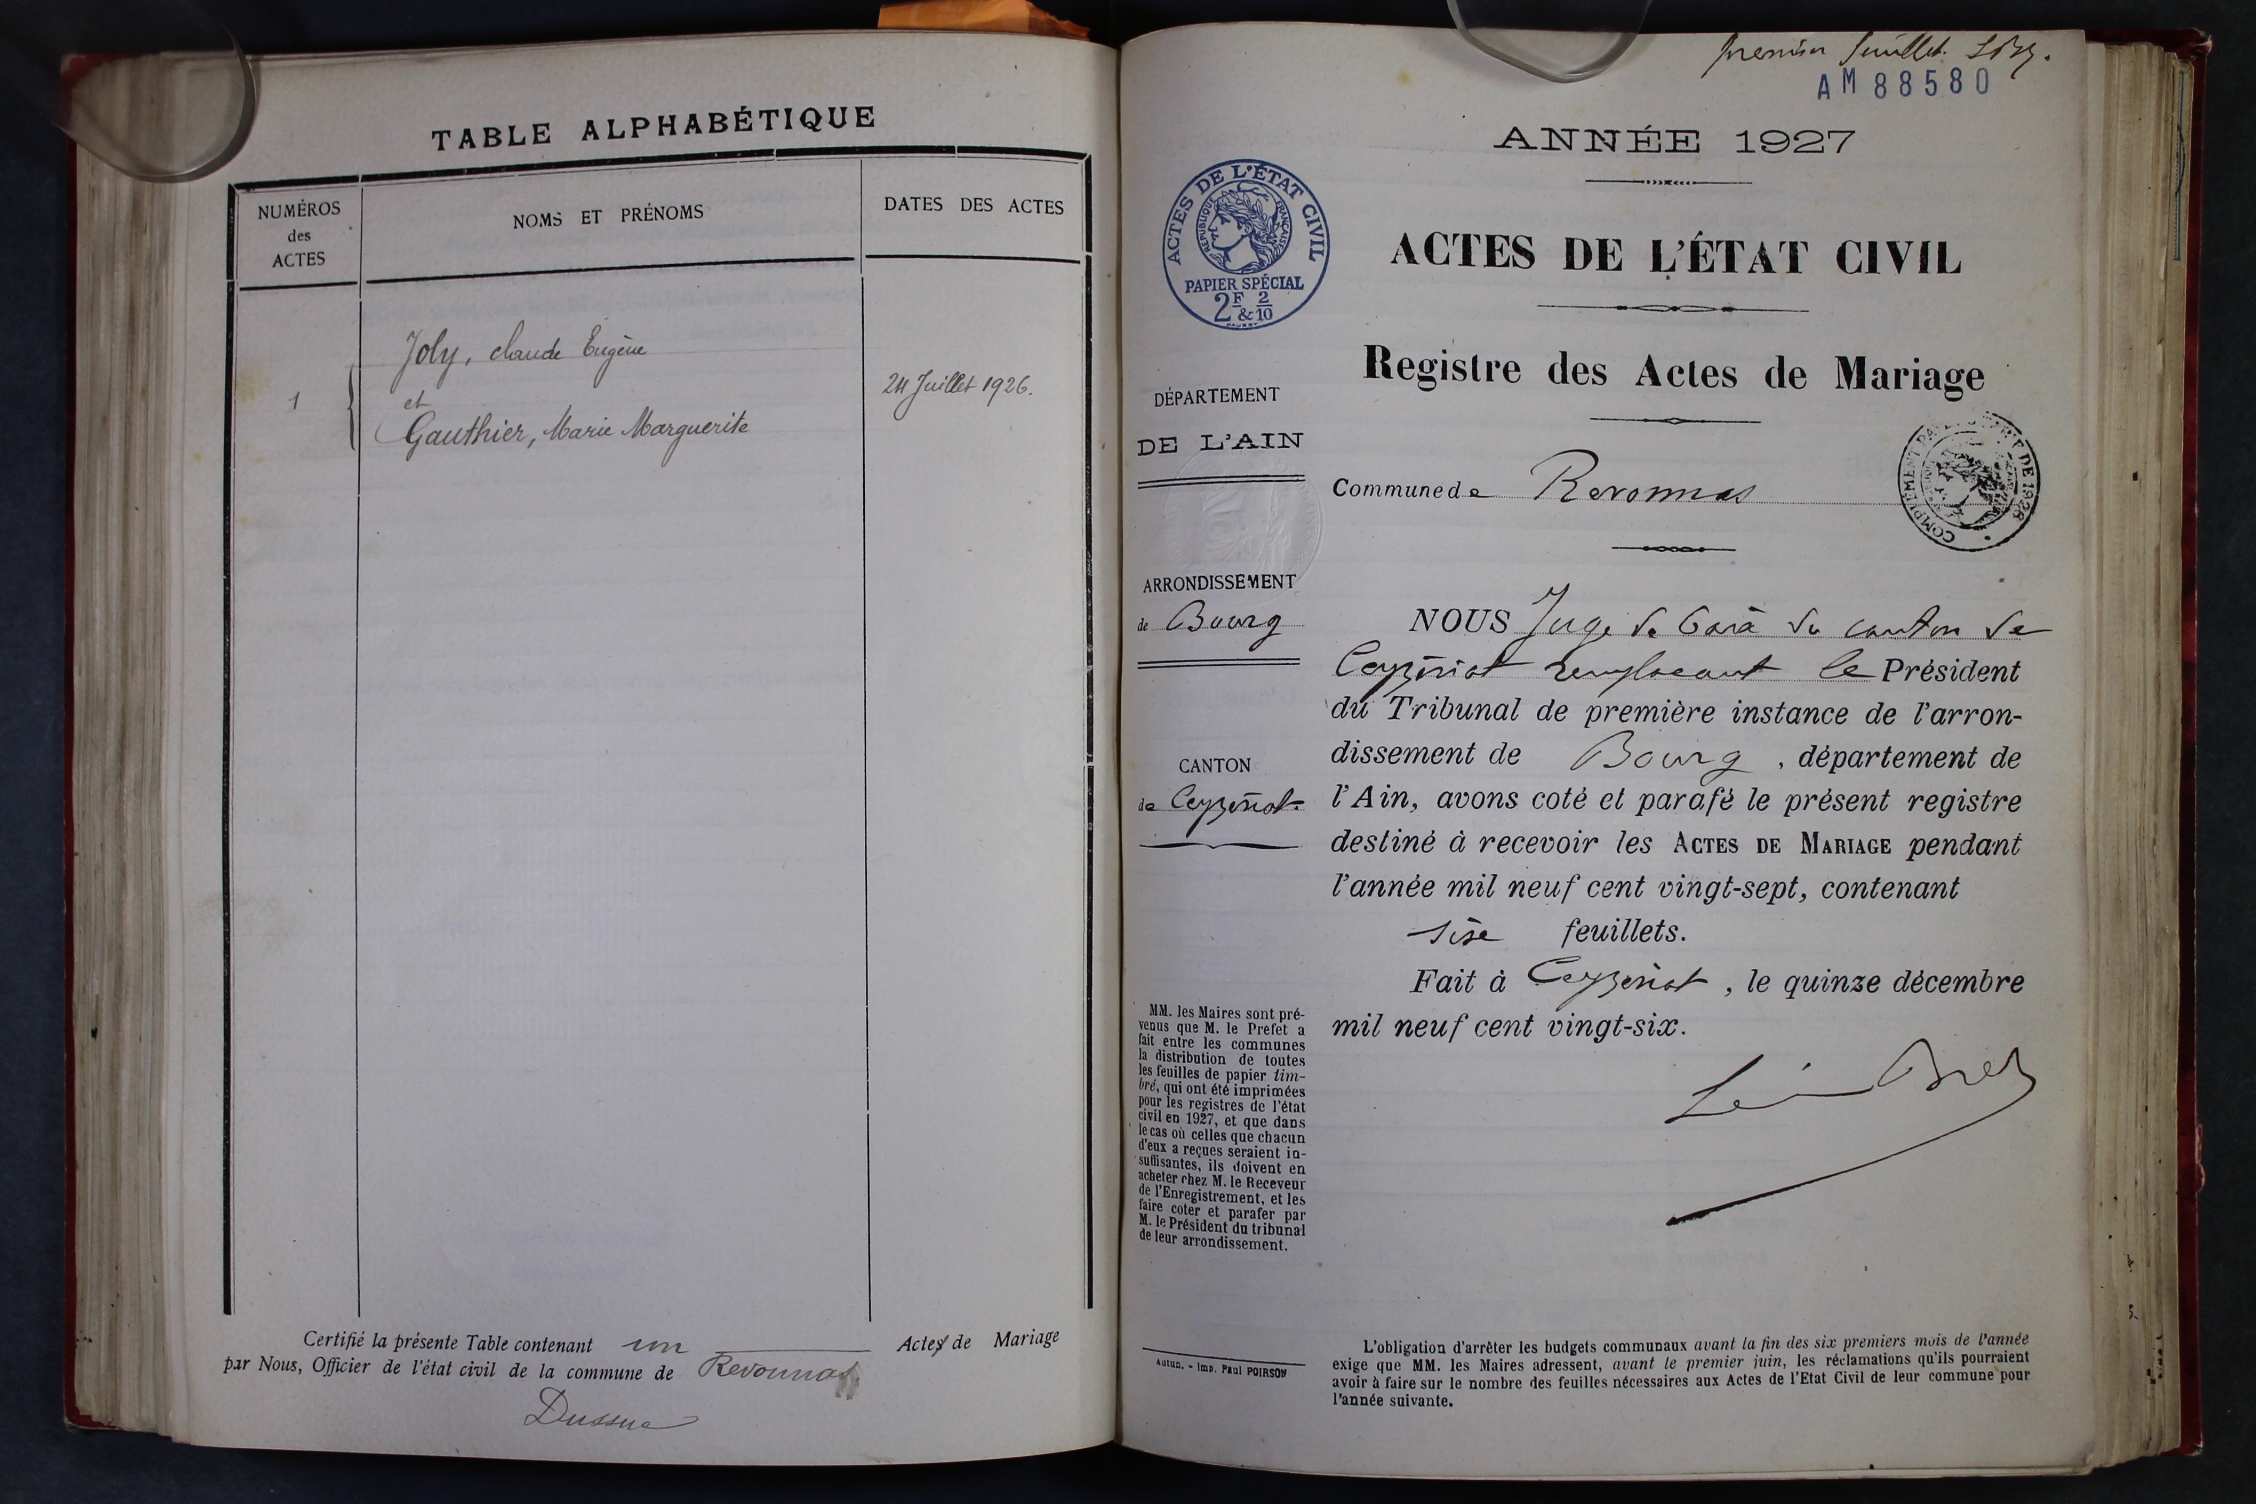 TABLE ALPHABÉTIQUE
NUMÉROS
des
ACTES
NOMS ET PRÉNOMS
DATES DES ACTES
Joly, claude Eugène
1
et
24 Juillet 1926.
Gauthier, Marie Marguerite
Certifié la présente Table contenant un Actes de Mariage
par Nous, Officier de l'état civil de la commune de Revonnas
premier feuillet
AM 88580
ANNÉE 1927
ACTES DE L'ÉTAT CIVIL
RÉPUBLIQUE FRANÇAISE
PAPIER SPÉCIAL
2F & 2/10
ACTES DE L'ÉTAT CIVIL
Registre des Actes de Mariage
DÉPARTEMENT
DE L'AIN
Commune de Revonnas
COMPLÉMENT DE 1926
ARRONDISSEMENT
de Bourg
CANTON
de Ceyzériat
NOUS Juge de Paix du canton de
Ceyzériat remplaçant le Président
du Tribunal de première instance de l'arron-
dissement de Bourg, département de
l'Ain, avons coté et parafé le présent registre
destiné à recevoir les ACTES DE MARIAGE pendant
l'année mil neuf cent vingt-sept, contenant
feuillets.
Fait à Ceyzériat, le quinze décembre
mil neuf cent vingt-six.
MM. les Maires sont pré-
venus que M. le Prefet a
fait entre les communes
la distribution de toutes
les feuilles de papier tim-
bré, qui ont été imprimées
pour les registres de l'état
civil en 1927, et que dans
le cas où celles que chacun
d'eux a reçues seraient in-
suffisantes, ils doivent en
acheter chez M. le Receveur
de l'Enregistrement, et les
faire coter et parafer par
M. le Président du tribunal
de leur arrondissement.
Autun. - Imp. Paul POIRSON
L'obligation d'arrêter les budgets communaux avant la fin des six premiers mois de l'année
exige que MM. les Maires adressent, avant le premier juin, les réclamations qu'ils pourraient
avoir à faire sur le nombre des feuilles nécessaires aux Actes de l'Etat Civil de leur commune pour
l'année suivante.